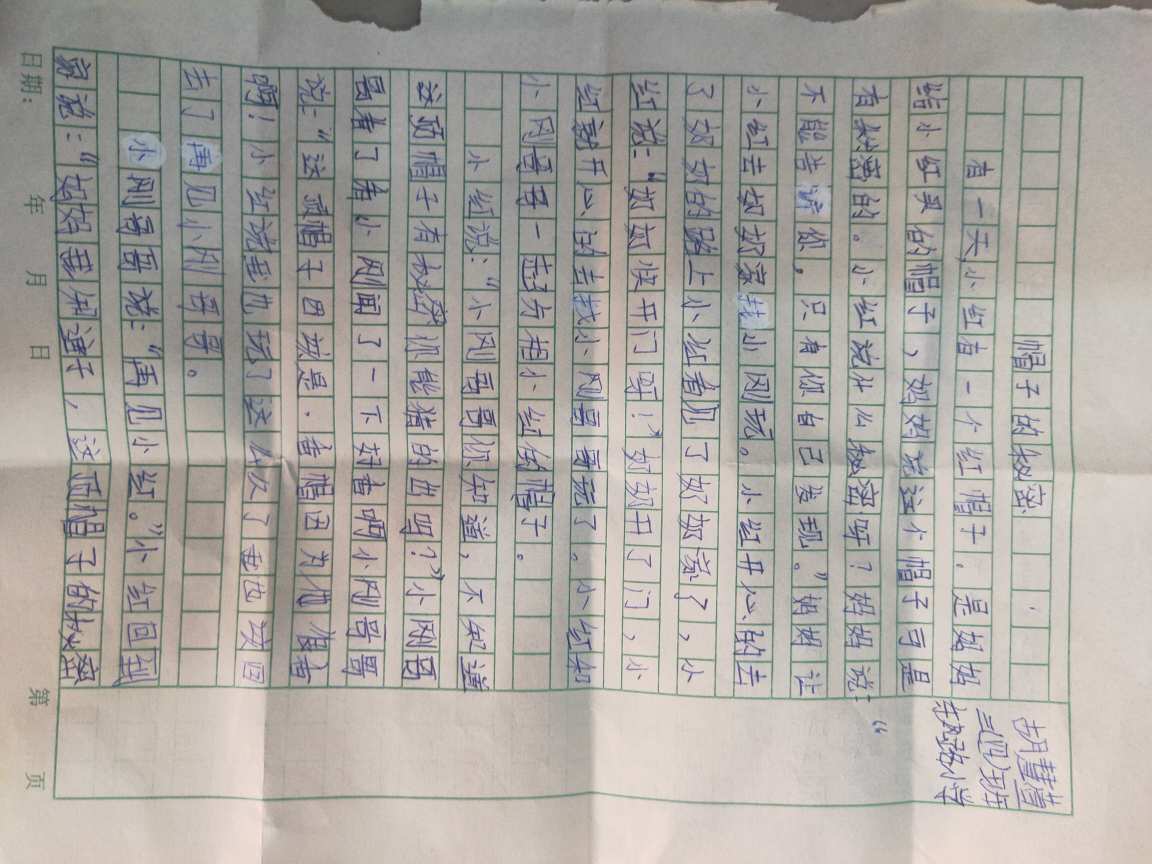 帽子的秘密
胡慧萱
三(四)班
小学
有一天小红有一个红帽子.是妈妈
给小红买的帽子,妈妈说这个帽子可是
有秘密的。小红说什么秘密呀?妈妈说:“
不能告诉你,只有你自己发现。”妈妈让
小红去奶奶家找小刚玩。小红开心的去
了奶奶的路上小红看见了奶奶家了,小
红说:“奶奶快开门呀!”奶奶开了门,小
红就开心的去找小刚哥哥玩了。小红和
小刚哥哥一起 小红的帽子。
小红说:“小刚哥哥你知道,不知道
这顶帽子有秘密你能猜的出吗?”小刚哥
哥看了看小刚闻了一下好香啊小刚哥哥
说:“这顶帽子 是.香帽因为他很香
啊!小红说是也玩了这么久了我也该回
去了再见小刚哥哥。
小刚哥哥说:“再见小红。”小红回到
家说:“妈妈我知道了,这顶帽子的秘密
日期: 年 月 日
第 页